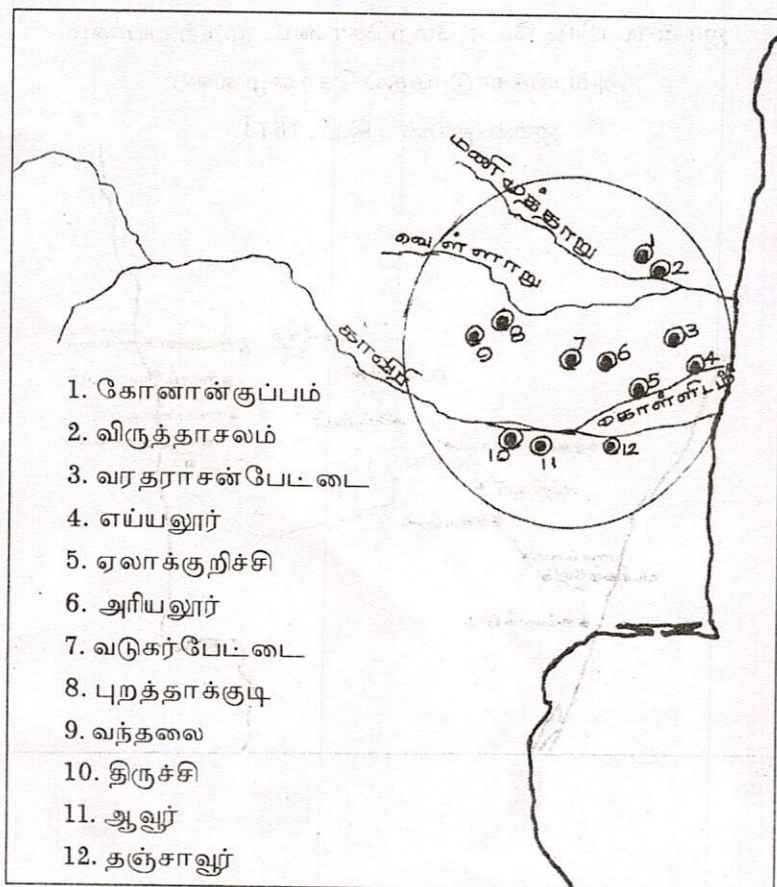 மணிமுத்தாறு
வெள்ளாறு
காவேரி
கொள்ளிடம்
1
2
3
4
5
6
7
8
9
10
11
12
1. கோனான்குப்பம்
2. விருத்தாசலம்
3. வரதராசன்பேட்டை
4. எய்யலூர்
5. ஏலாக்குறிச்சி
6. அரியலூர்
7. வடுகர்பேட்டை
8. புறத்தாக்குடி
9. வந்தலை
10. திருச்சி
11. ஆவூர்
12. தஞ்சாவூர்